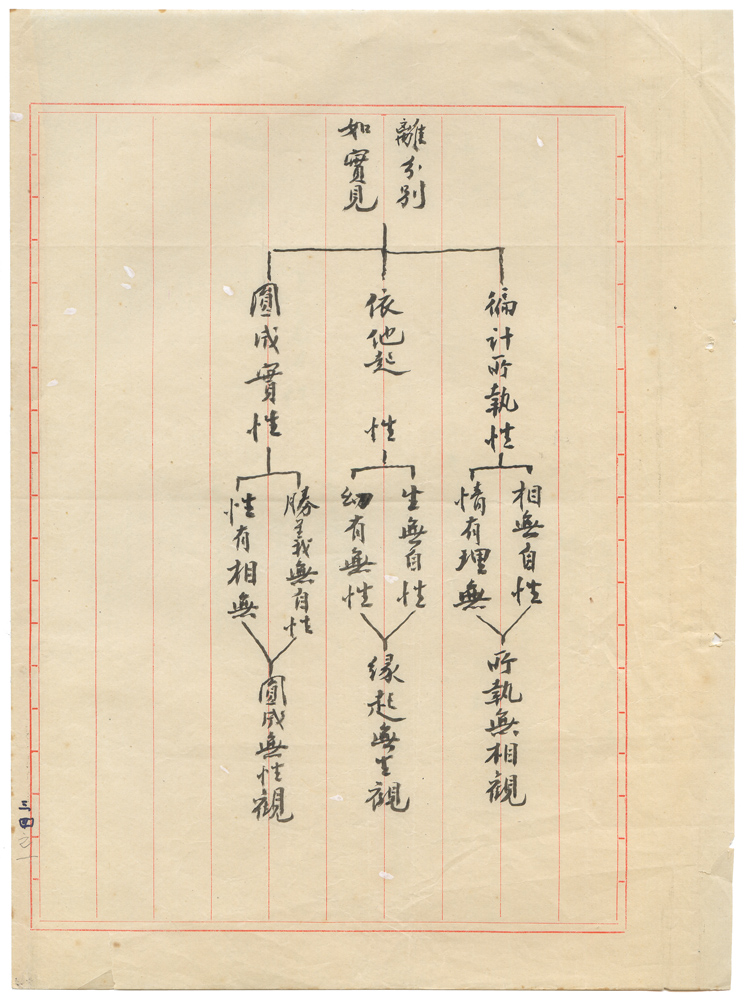 離分別
如實見
徧計所執性
相無自性
情有理無
所執無相觀
依他起性
生無自性
幻有無性
緣起無生觀
圓成實性
勝義無自性
性有相無
圓成無性觀